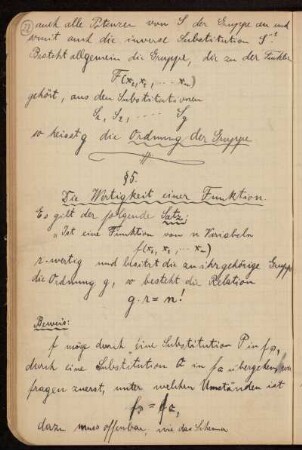 auch alle Potenzen von S der Gruppe an und
somit auch die inverse Substitution S⁻¹
Besteht allgemein die Gruppe, die zu der Funktion
F(x₁, x₂, ... xₙ)
gehört, aus den Substitutionen
S₁, S₂, .... S_g
so heisst g die Ordnung der Gruppe
§5.
Die Wertigkeit einer Funktion
Es gilt der folgende Satz:
„Ist eine Funktion von n Variabeln
f(x₁, x₂, ... xₙ)
r-wertig und besitzt die zu ihr gehörige Gruppe
die Ordnung g, so besteht die Relation
g·r = n!
Beweis:
f möge durch eine Substitution P in f_P,
durch eine Substitution Q in f_Q übergehen, wir
fragen zuerst, unter welchen Umständen ist
f_P = f_Q,
dazu muss offenbar, wie das Schema